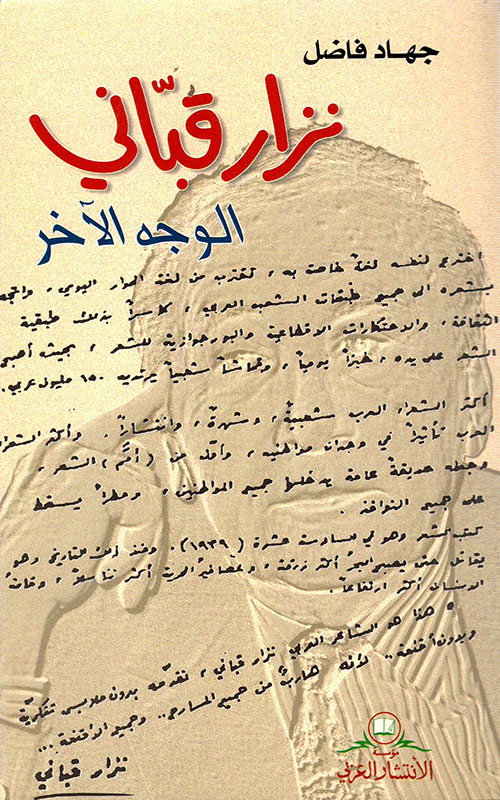 جهاد فاضل
نزار قبّاني
الوجه الآخر
اخترع لنفسه لغة خاصة به، تقترب من لغة الحوار اليومي، واتجه
بشعره الى جميع طبقات الشعب العربي، كاسراً بذلك طبقية
الثقافة، والاحتكارات الاقطاعية والبورجوازية للشعر، بحيث أصبح
الشعر على يده، خبزاً يومياً، وقماشاً شعبياً يرتديه ١٥٠ مليون عربي.
أكثر الشعراء العرب شعبيةً، وشهرةً، وانتشاراً. وأكثر الشعراء
العرب تأثيراً في وجدان مواطنيه، وأول من (أمّم) الشعر،
وجعله حديقةً عامة يدخلها جميع المواطنين، ومطراً يسقط
على جميع النوافذ.
كتب الشعر وهو في السادسة عشرة (١٩٣٩). ومنذ ذلك التاريخ وهو
يقاتل حتى يصبح البحر أكثر زرقة، وعصافير الحرية أكثر تناسلاً، وقامة
الانسان أكثر ارتفاعاً.
هذا هو الشاعر العربي نزار قباني، نقدّمه بدون ملابس تنكريّة
وبدون أقنعة.. لأنه هاربٌ من جميع المسارح.. وجميع الأقنعة...
نزار قباني
مؤسسة
الانتشار العربي